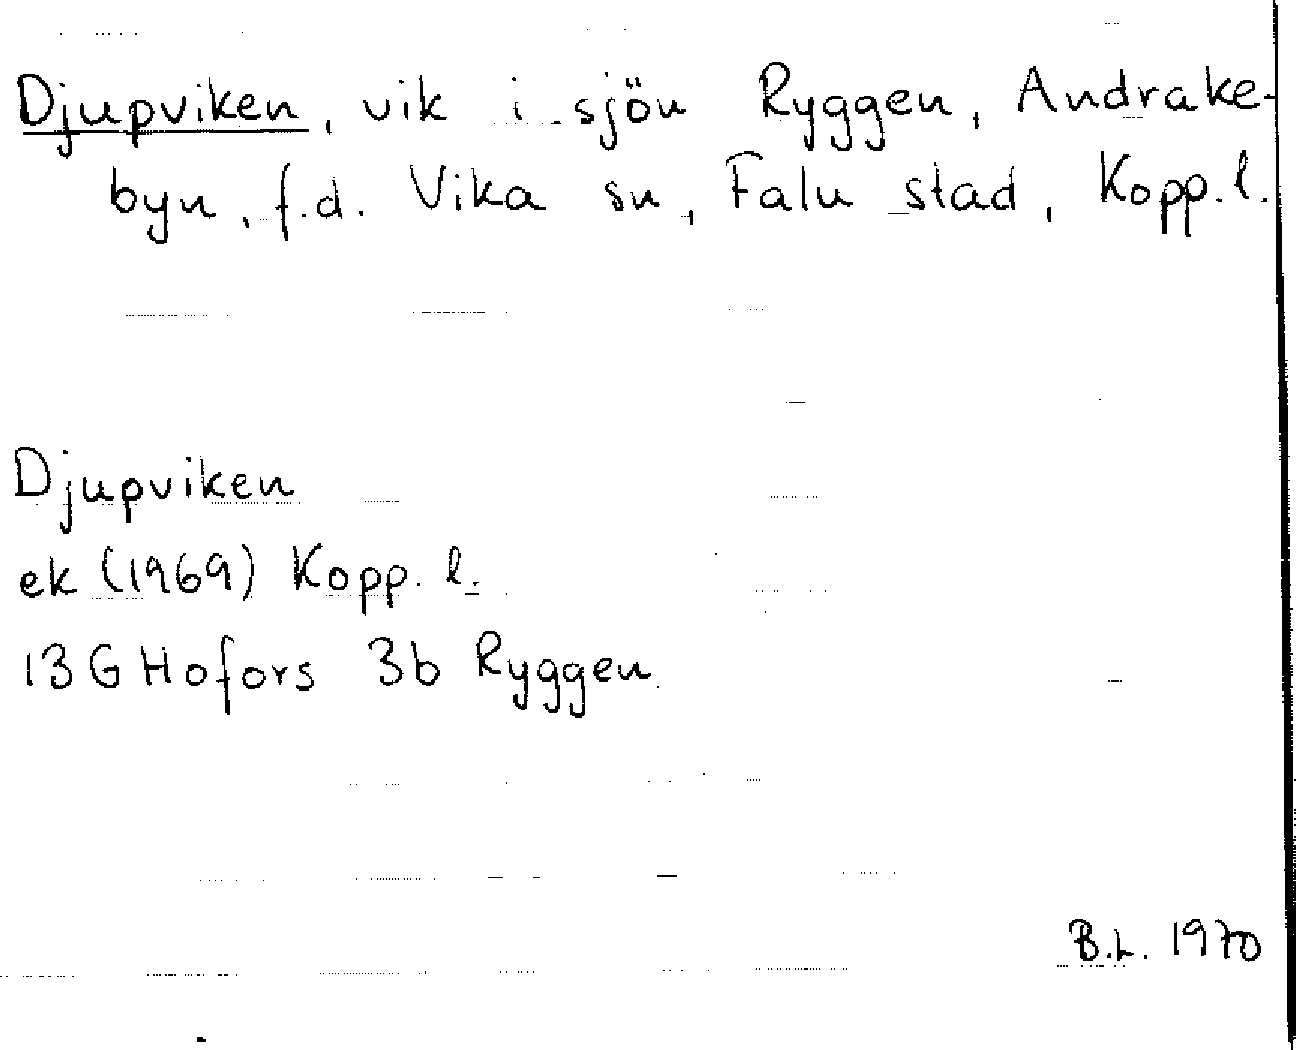 Djupviken, vik i sjön Ryggen, Andrake-
byn, f.d. Vika sn, Falu stad, Kopp.l.
Djupviken
ek (1969) Kopp. l.
13 G Hofors 3b Ryggen
B.L. 1970